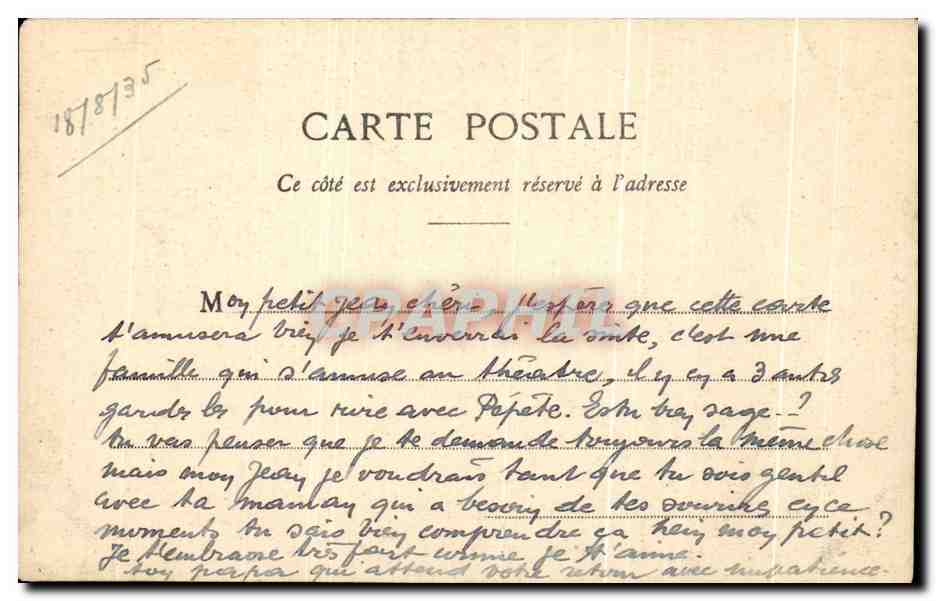 18/8/35
CARTE POSTALE
Ce côté est exclusivement réservé à l'adresse
Mon petit Jean chéri, j'espère que cette carte
t'amusera bien je t'enverrai la suite, c'est une
famille qui s'amuse au théâtre, il y en a 3 autres
gardes les pour rire avec Pépète. Es tu bien sage-?
tu vas penser que je te demande toujours la même chose
mais mon Jean je voudrais tant que tu sois gentil
avec ta maman qui a besoin de tes sourires en ce
moment tu sais bien comprendre ça hein mon petit?
Je t'embrasse très fort comme je t'aime.
ton papa qui attend votre retour avec impatience.
CPAPHIL